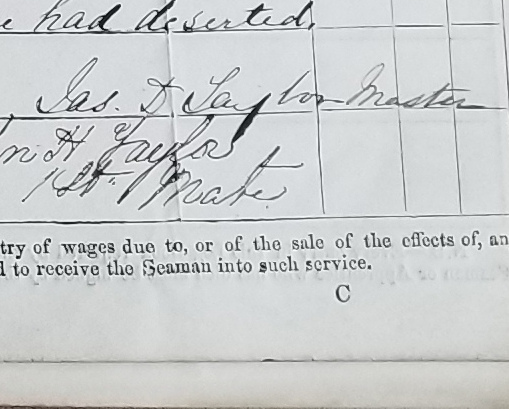 e had deserted.
Jas. D Taylor Master
m H Taylor
1st. Mate
try of wages due to, or of the sale of the effects of, an
d to receive the Seaman into such service.
C